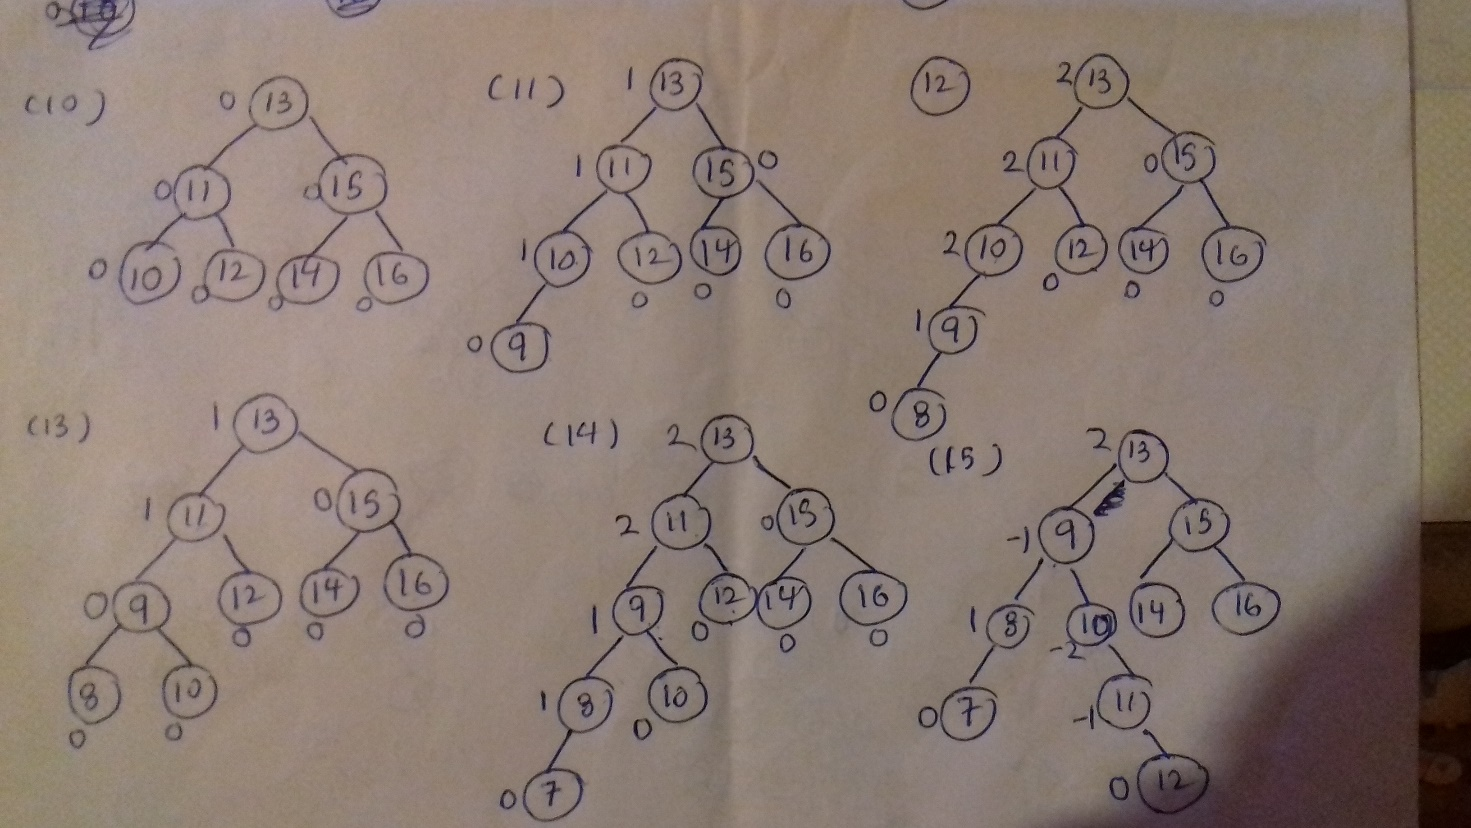 (10) 0 13
0 11 0 15
0 10 0 12 0 14 0 16
(11) 1 13
1 11 15 0
1 10 12 14 16
0 0 0
0 9
12 2 13
2 11 0 15
2 10 12 14 16
0 0 0
1 9
0 8
(13) 1 13
1 11 0 15
0 9 12 14 16
0 0 0
8 10
0 0
(14) 2 13
2 11 0 15
1 9 12 14 16
0 0 0
1 8 10
0
0 7
(15) 2 13
-1 9 15
1 8 10 14 16
-2
0 7 -1 11
0 12